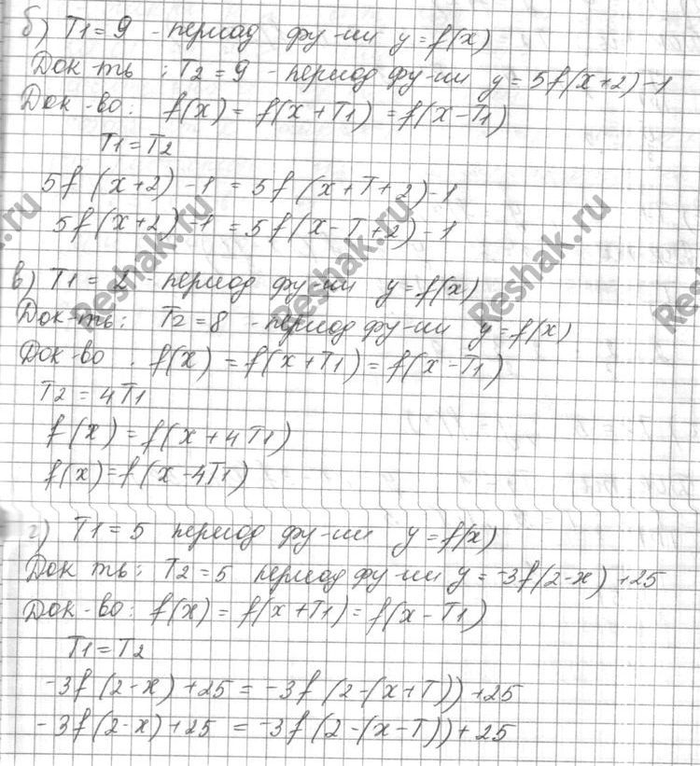 б) T1 = 9 - период фу-ии y = f(x)
Док-ть : T2 = 9 - период фу-ии y = 5f(x+2)-1
Док-во: f(x) = f(x+T1) = f(x-T1)
T1 = T2
5f(x+2)-1 = 5f(x+T+2)-1
5f(x+2)-1 = 5f(x-T+2)-1
в) T1 = 2 - период фу-ии y = f(x)
Док-ть: T2 = 8 - период фу-ии y = f(x)
Док-во . f(x) = f(x+T1) = f(x-T1)
T2 = 4T1
f(x) = f(x+4T1)
f(x) = f(x-4T1)
г) T1 = 5 период фу-ии y = f(x)
Док ть: T2 = 5 период фу-ии y = -3f(2-x)+25
Док-во: f(x) = f(x+T1) = f(x-T1)
T1 = T2
-3f(2-x)+25 = -3f(2-(x+T))+25
-3f(2-x)+25 = -3f(2-(x-T))+25
Reshak.ru
Reshak.ru
Reshak.ru